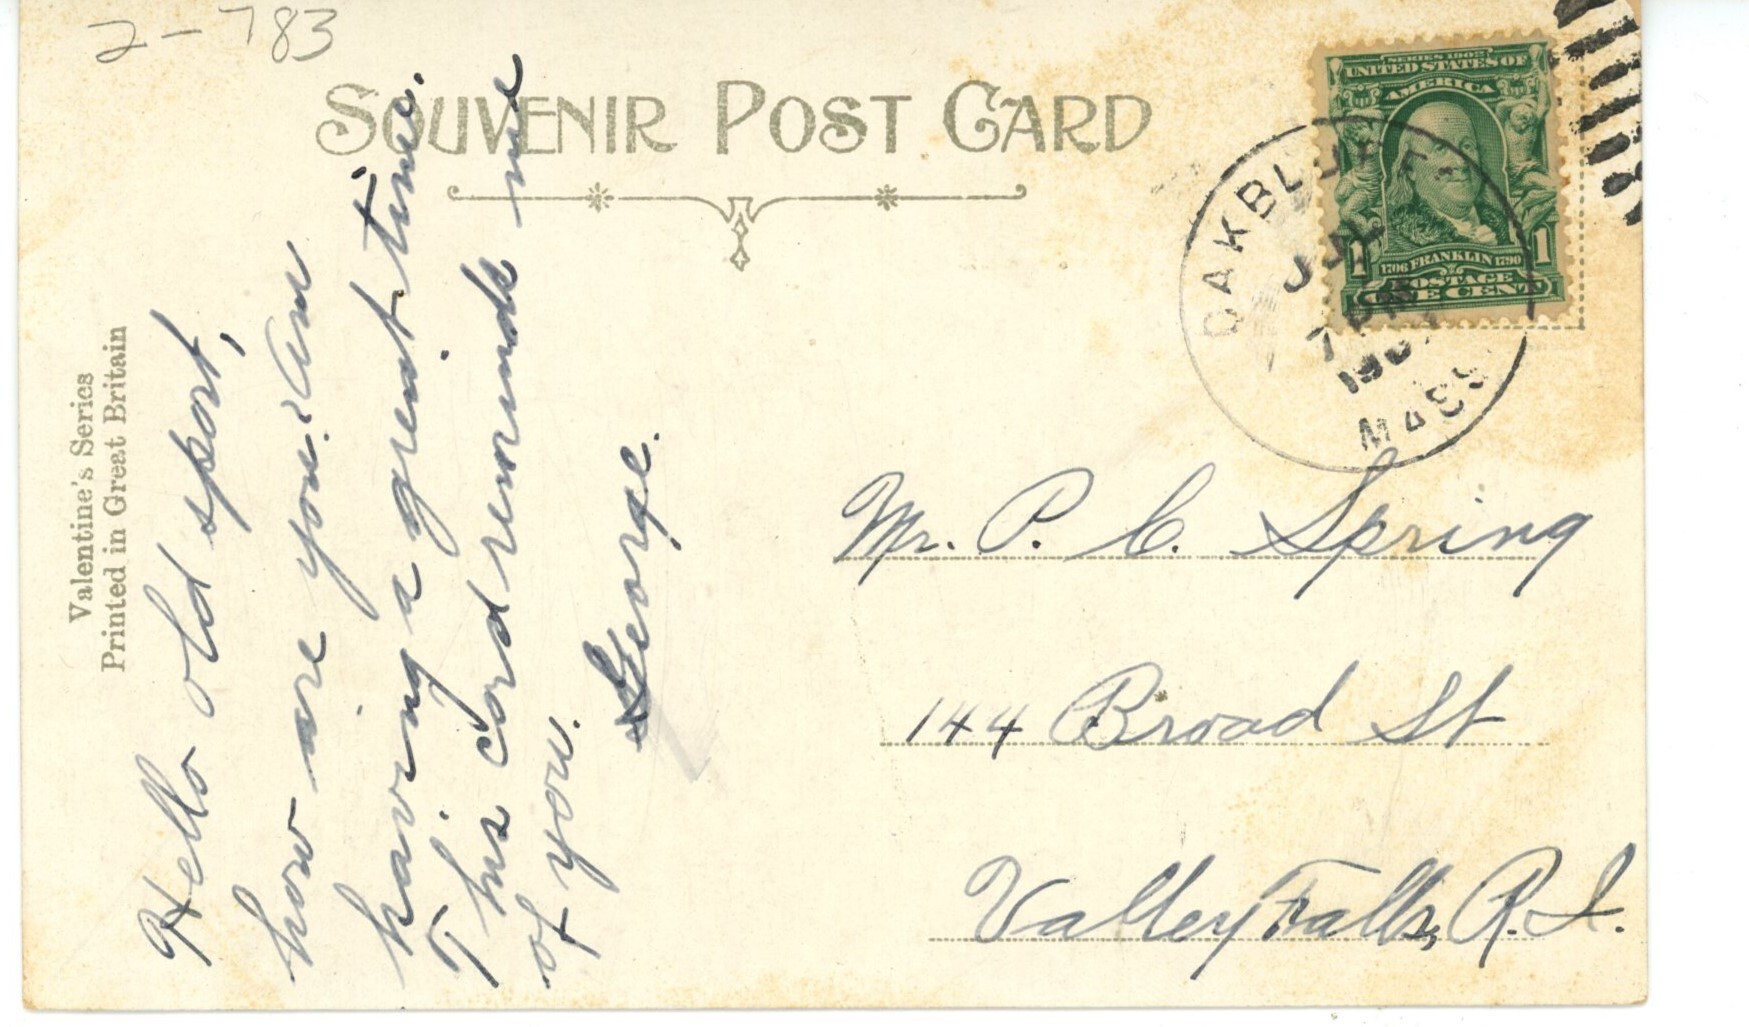 2-783
SOUVENIR POST CARD
SERIES 1902
UNITED STATES OF
AMERICA
1 1
1706 FRANKLIN 1790
POSTAGE
ONE CENT
OAK BLUFFS
7
MASS
Valentine's Series
Printed in Great Britain
Hello old sport,
how are you? Am
having a great time.
This card reminds me
of you.
George.
Mr. P. C. Spring
144 Broad St
Valley Falls, R.I.